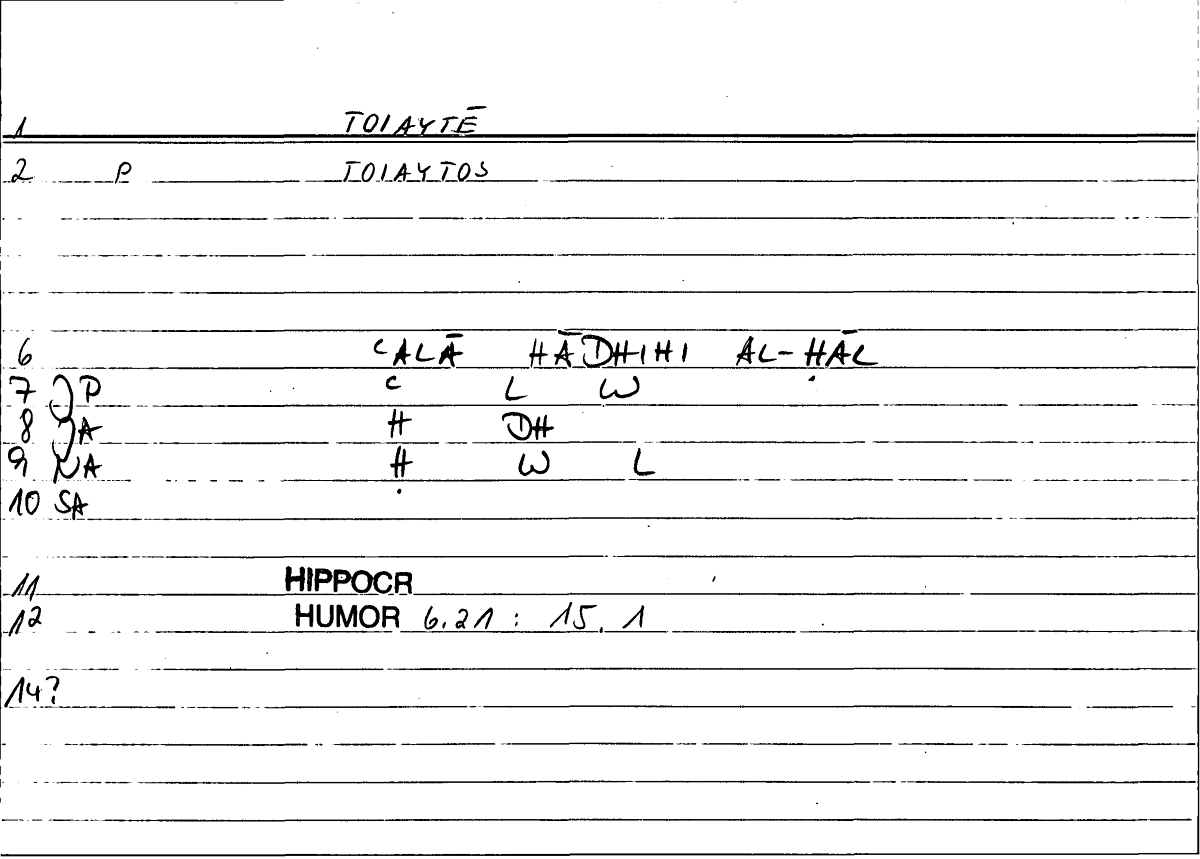 1 TOIAYTĒ
2 P TOIAYTOS
6 ᶜALĀ HĀDHIHI AL-ḤĀL
7 P ᶜ L W
8 A H DH
9 NA Ḥ W L
10 SA
11 HIPPOCR
12 HUMOR 6.21 : 15.1
14?